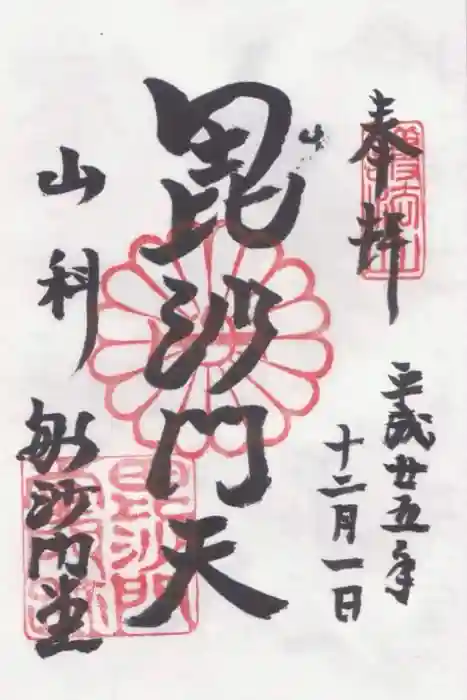 奉拝
平成廿五年
十二月一日
毘沙門天
山科
毘沙門堂